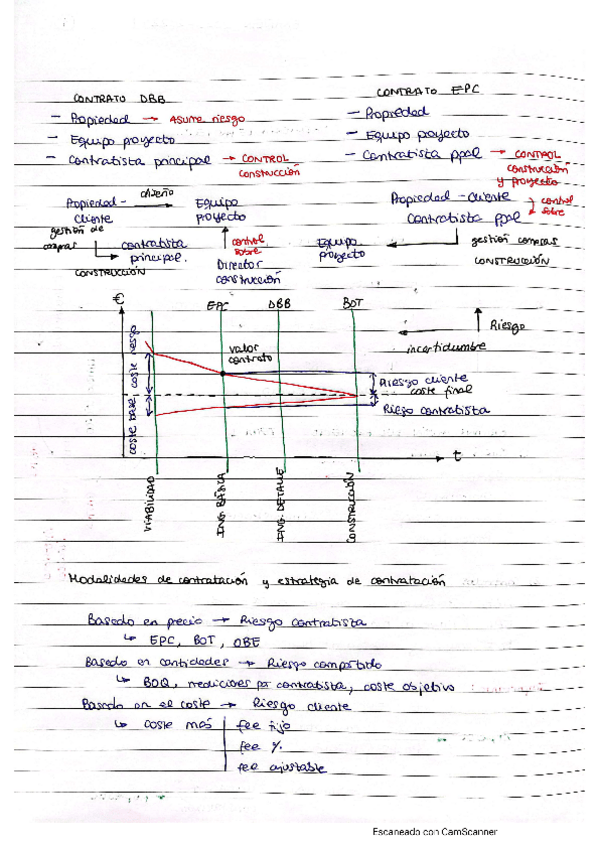 CONTRATO DBB
- Propiedad → Asume riesgo
- Equipo proyecto
- Contratista principal → CONTROL
construcción
CONTRATO EPC
- Propiedad
- Equipo proyecto
- Contratista ppal → CONTROL
construcción
y proyecto
Propiedad - diseño → Equipo
cliente proyecto
gestión de
compras → contratista
principal.
CONSTRUCCIÓN
control
sobre
Director
construcción
Propiedad - cliente
Contratista ppal
control
sobre
Equipo
proyecto
gestión compras
CONSTRUCCIÓN
€
EPC DBB BOT
Riesgo
incertidumbre
valor
contrato
coste base, coste riesgo
Riesgo cliente
coste final
Riesgo contratista
t
VIABILIDAD
ING. BÁSICA
ING. DETALLE
CONSTRUCCIÓN
Modalidades de contratación y estrategia de contratación
Basado en precio → Riesgo contratista
↳ EPC, BOT, OBE
Basado en cantidades → Riesgo compartido
↳ BOQ, mediciones por contratista, coste objetivo
Basado en el coste → Riesgo cliente
↳ coste más | fee fijo
fee %
fee ajustable
Escaneado con CamScanner